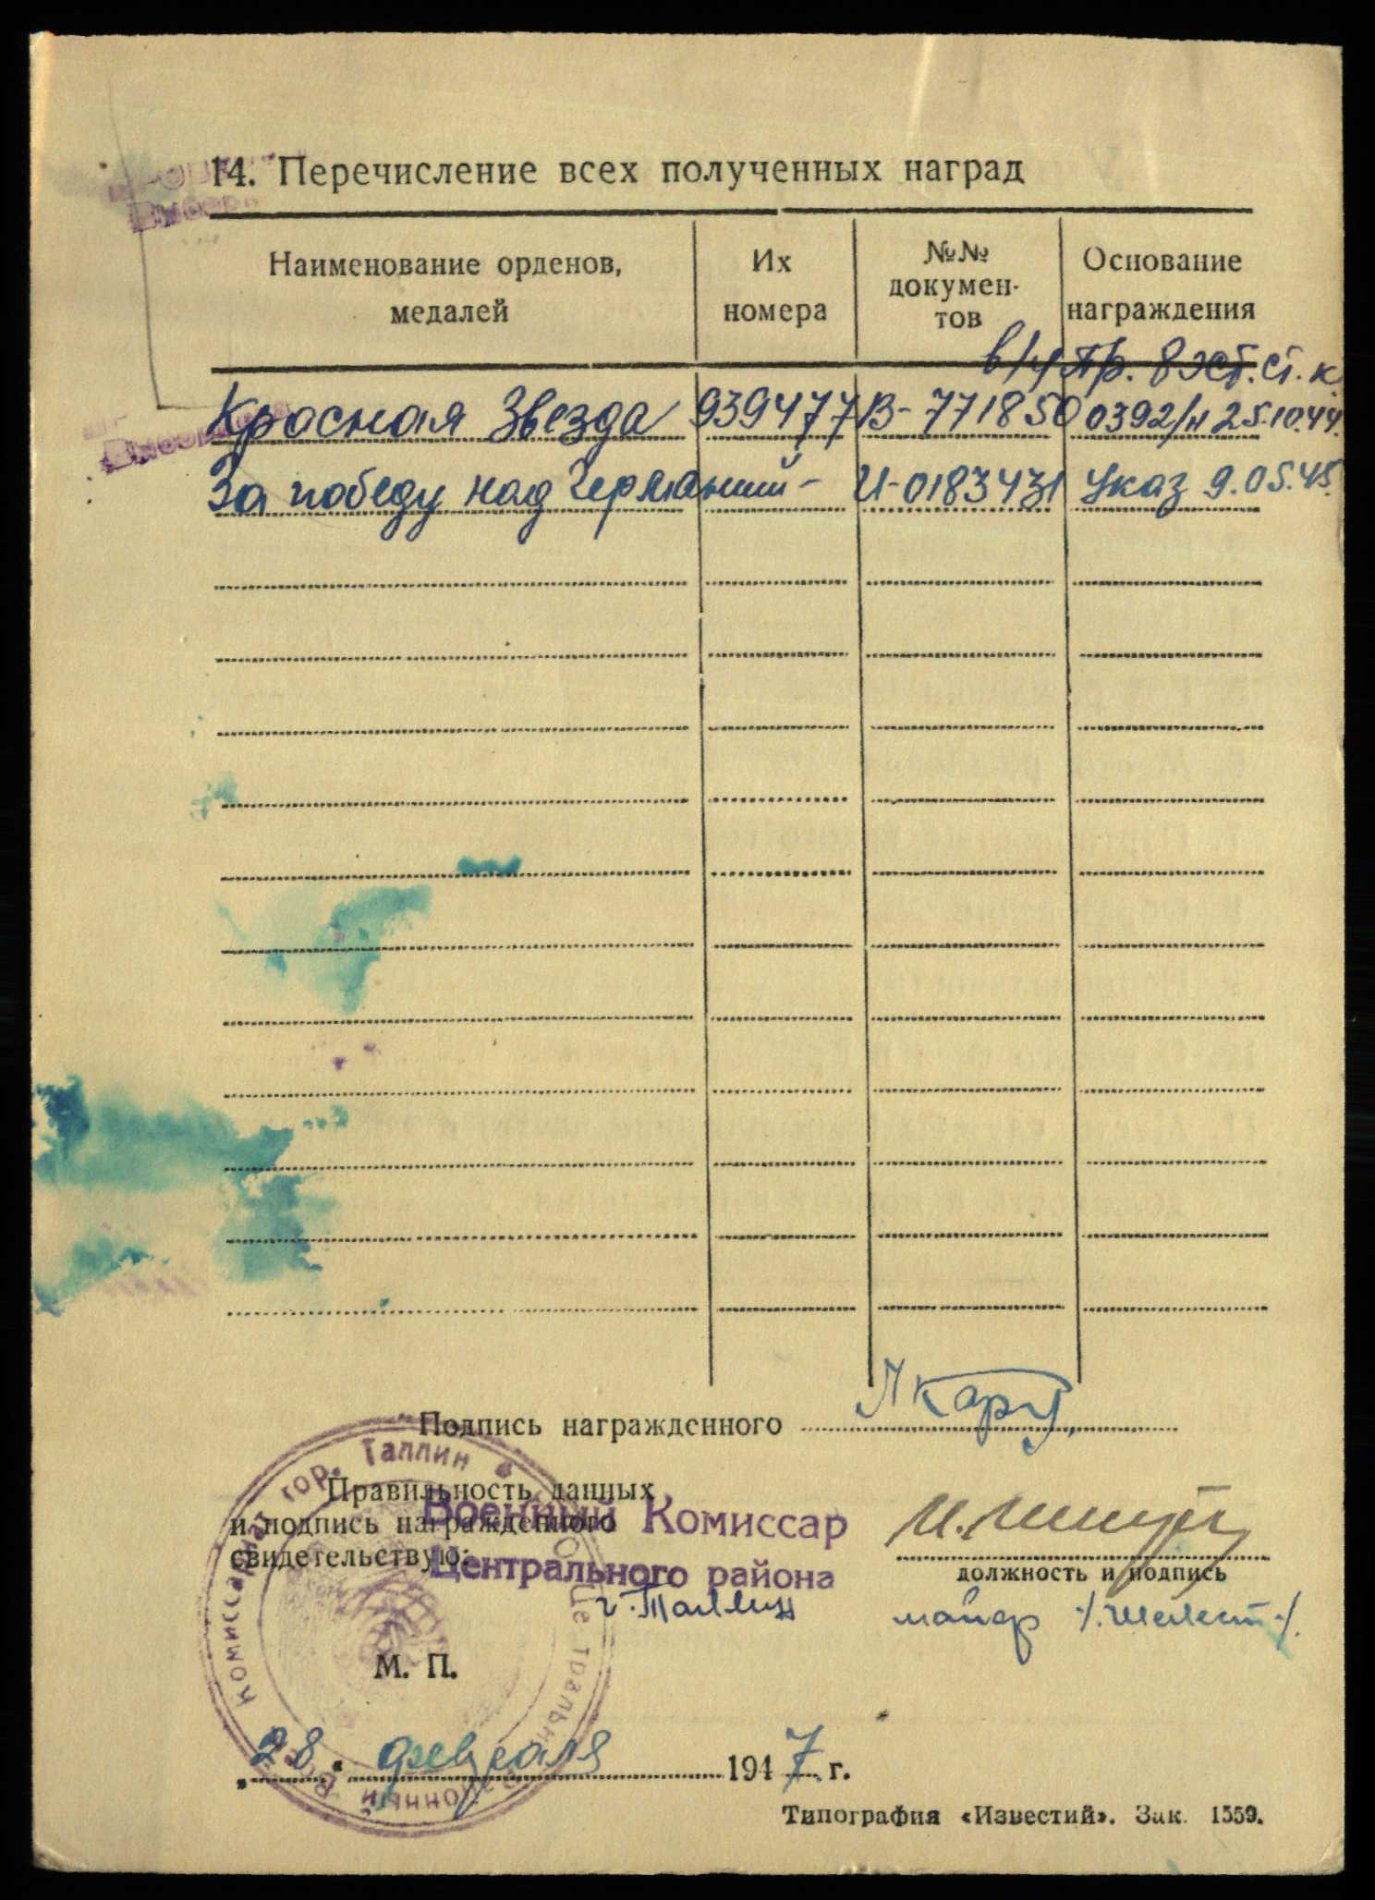 14. Перечисление всех полученных наград
Наименование орденов, медалей
Их номера
№№ документов
Основание награждения
в/ч Пр. 8 эст. ст. к
Красная Звезда 939477 В-771850 0392/н 25.10.44.
За победу над Германий - И-0183431 Указ 9.05.45.
Подпись награжденного Кару
Правильность данных
и подпись награжденного
свидетельствую:
Военный Комиссар
Центрального района
г. Таллин
должность и подпись
майор /.Шелест./.
М. П.
Комиссариат гор. Таллин
28 февраля 1947 г.
Типография «Известий». Зак. 1559.